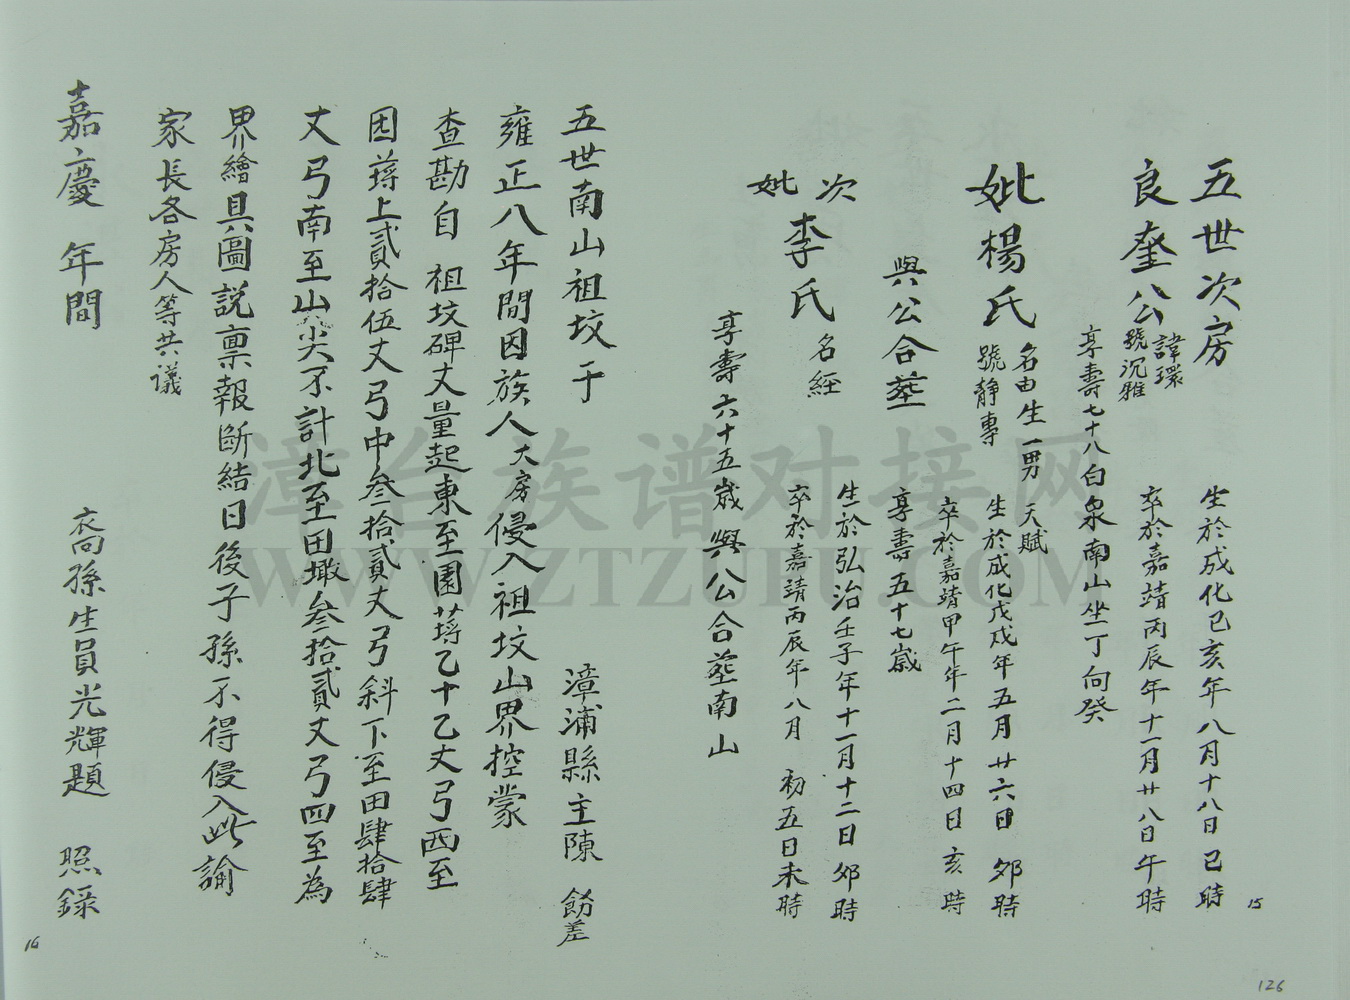 五世次房
良奎公 諱環 號沉雅
生於成化己亥年八月十八日巳時
卒於嘉靖丙辰年十一月廿八日午時
享壽七十八 白泉南山坐丁向癸
妣楊氏 名由 生一男 天賦
號靜專
生於成化戊戌年五月廿六日卯時
卒於嘉靖甲午年二月十四日亥時
與公合塟 享壽五十七歲
次妣李氏 名經
生於弘治壬子年十一月十二日卯時
卒於嘉靖丙辰年八月 初五日未時
享壽六十五歲 與公合塟南山
五世南山祖坟于 漳浦縣主陳 飭差
雍正八年間因族人大房侵入祖坟山界控蒙
查勘自 祖坟碑丈量起東至園乙十乙丈弓西至
因上貳拾伍丈弓中叁拾貳丈弓斜下至田肆拾肆
丈弓南至山尖不計北至田墘叁拾貳丈弓四至為
界繪具圖説禀報斷結日後子孫不得侵入此諭
家長各房人等共議
嘉慶 年間 裔孫生員光輝題 照錄
15
16
126
漳台族谱对接网
WWW.ZTZUPU.COM